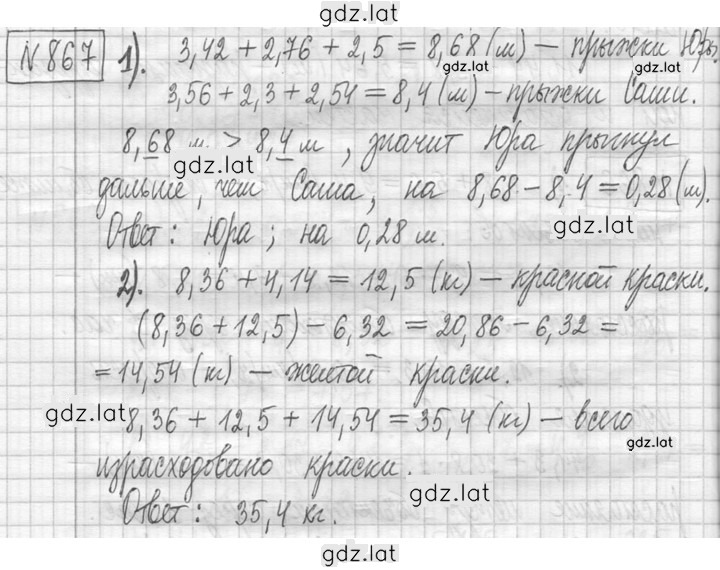 gdz.lat
№867 1). 3,42 + 2,76 + 2,5 = 8,68 (м) – прыжки Юры.
gdz.lat gdz.lat
3,56 + 2,3 + 2,54 = 8,4 (м) – прыжки Саши.
8,68 м > 8,4 м, значит Юра прыгнул
gdz.lat
дальше, чем Саша, на 8,68 – 8,4 = 0,28 (м).
gdz.lat
Ответ: Юра; на 0,28 м.
2). 8,36 + 4,14 = 12,5 (кг) – красной краски.
gdz.lat
(8,36 + 12,5) – 6,32 = 20,86 – 6,32 =
= 14,54 (кг) – желтой краски.
gdz.lat
8,36 + 12,5 + 14,54 = 35,4 (кг) – всего
gdz.lat
израсходовано краски.
gdz.lat
Ответ: 35,4 кг.
gdz.lat